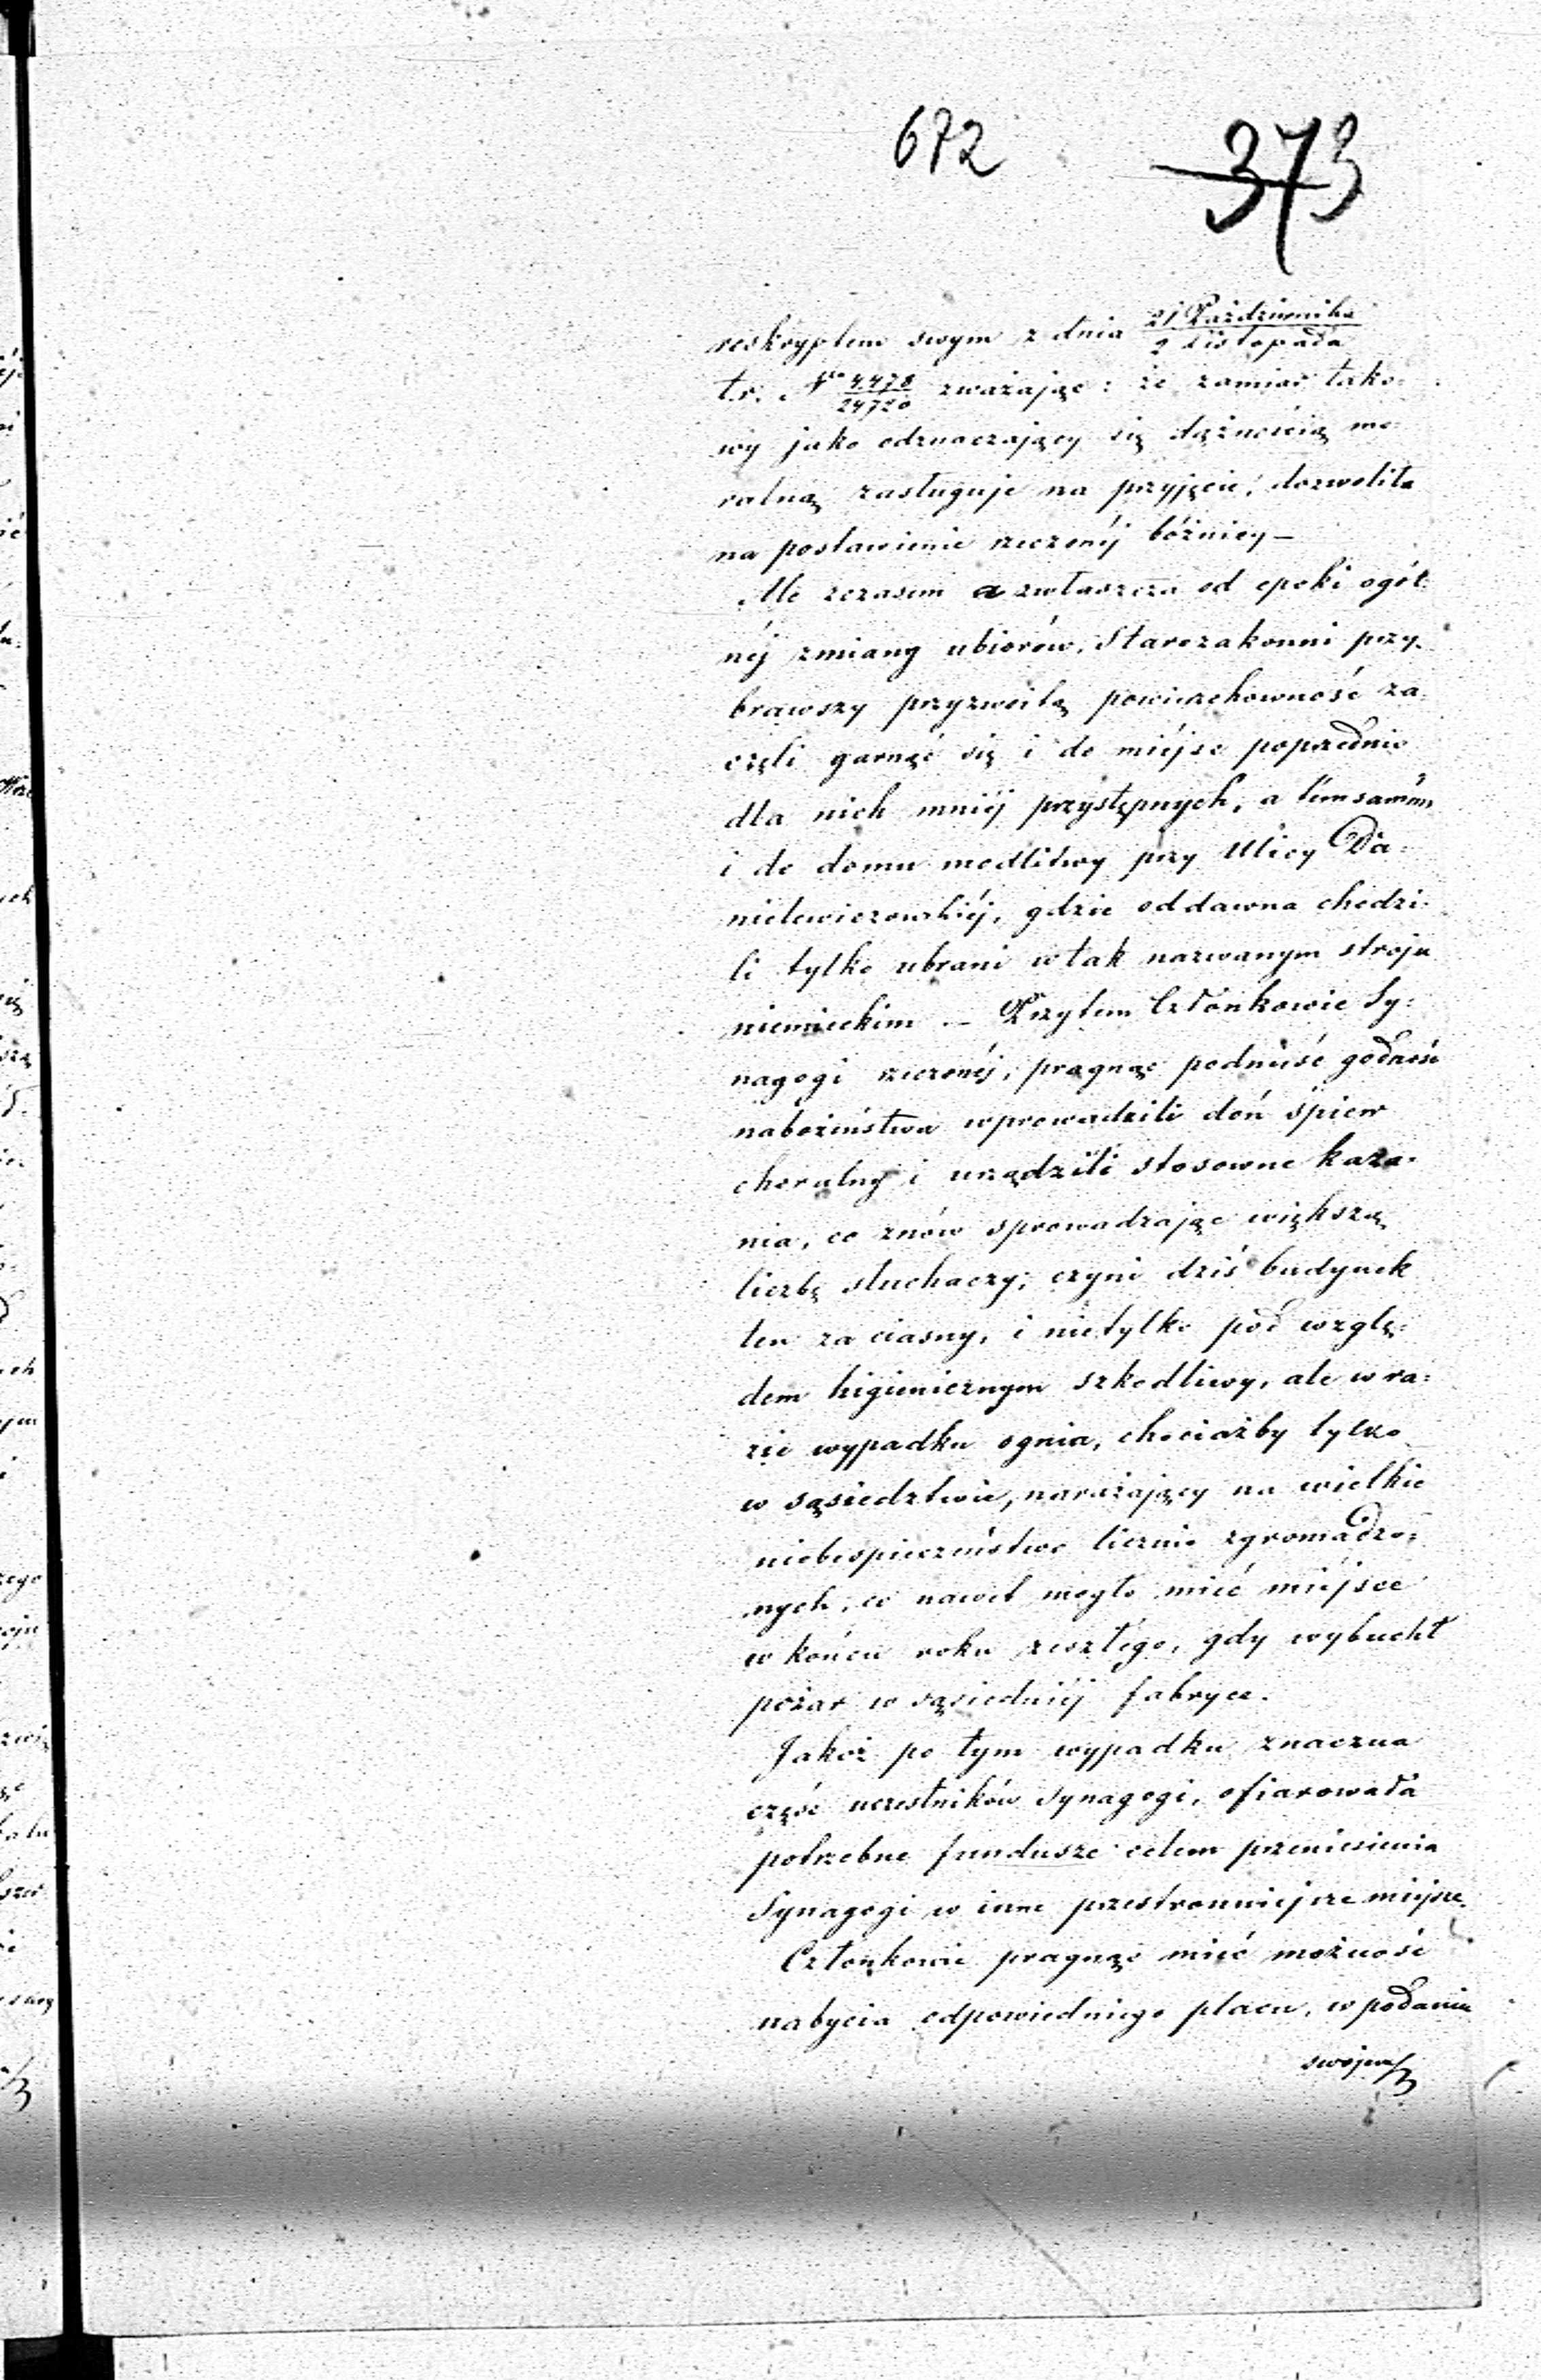 672 373
reskryptem swym z dnia 21 Października / 2 Listopada
t.r. Nro 4.478 / 24720 zważając: że zamiar tako-
wy jako odznaczający się dążnością mo-
ralną zasługuje na przyjęcie, dozwoliła
na postawienie rzeczonéj bóżnicy —
Ale zczasem a zwłaszcza od epoki ogól-
néj zmiany ubiorów, Starozakonni przy-
brawszy przyzwoitą powierzchowność za-
częli garnąć się i do miéjsc poprzednio
dla nich mniéj przystępnych, a témsamém
i do domu modlitwy przy Ulicy Da-
nielewiczowskiéj, gdzie oddawna chodzi-
li tylko ubrani w tak nazwanym stroju
niemieckim. — Przytem Członkowie Sy-
nagogi rzeczonéj, pragnąc podnieść godność
nabożeństwa wprowadzili doń śpiew
choralny i urządzili stosowne kaza-
nia, co znów sprowadzając większą
liczbę słuchaczy, czyni dziś budynek
ten za ciasny, i nietylko pod wzglę-
dem higienicznym szkodliwy, ale w ra-
zie wypadku ognia, chociażby tylko
w sąsiedztwie, narażający na wielkie
niebespieczeństwo licznie zgromadzo-
nych, co nawet mogło mieć miéjsce
w końcu roku zeszłego, gdy wybuchł
pożar w sąsiedniéj fabryce.
Jakoż po tym wypadku znaczna
część uczestników Synagogi, ofiarowała
potrzebne fundusze celem przeniesienia
Synagogi w inne przestronniejsze miejsce.
Członkowie pragnąc mieć możność
nabycia odpowiedniego placu, w podaniu
swojem